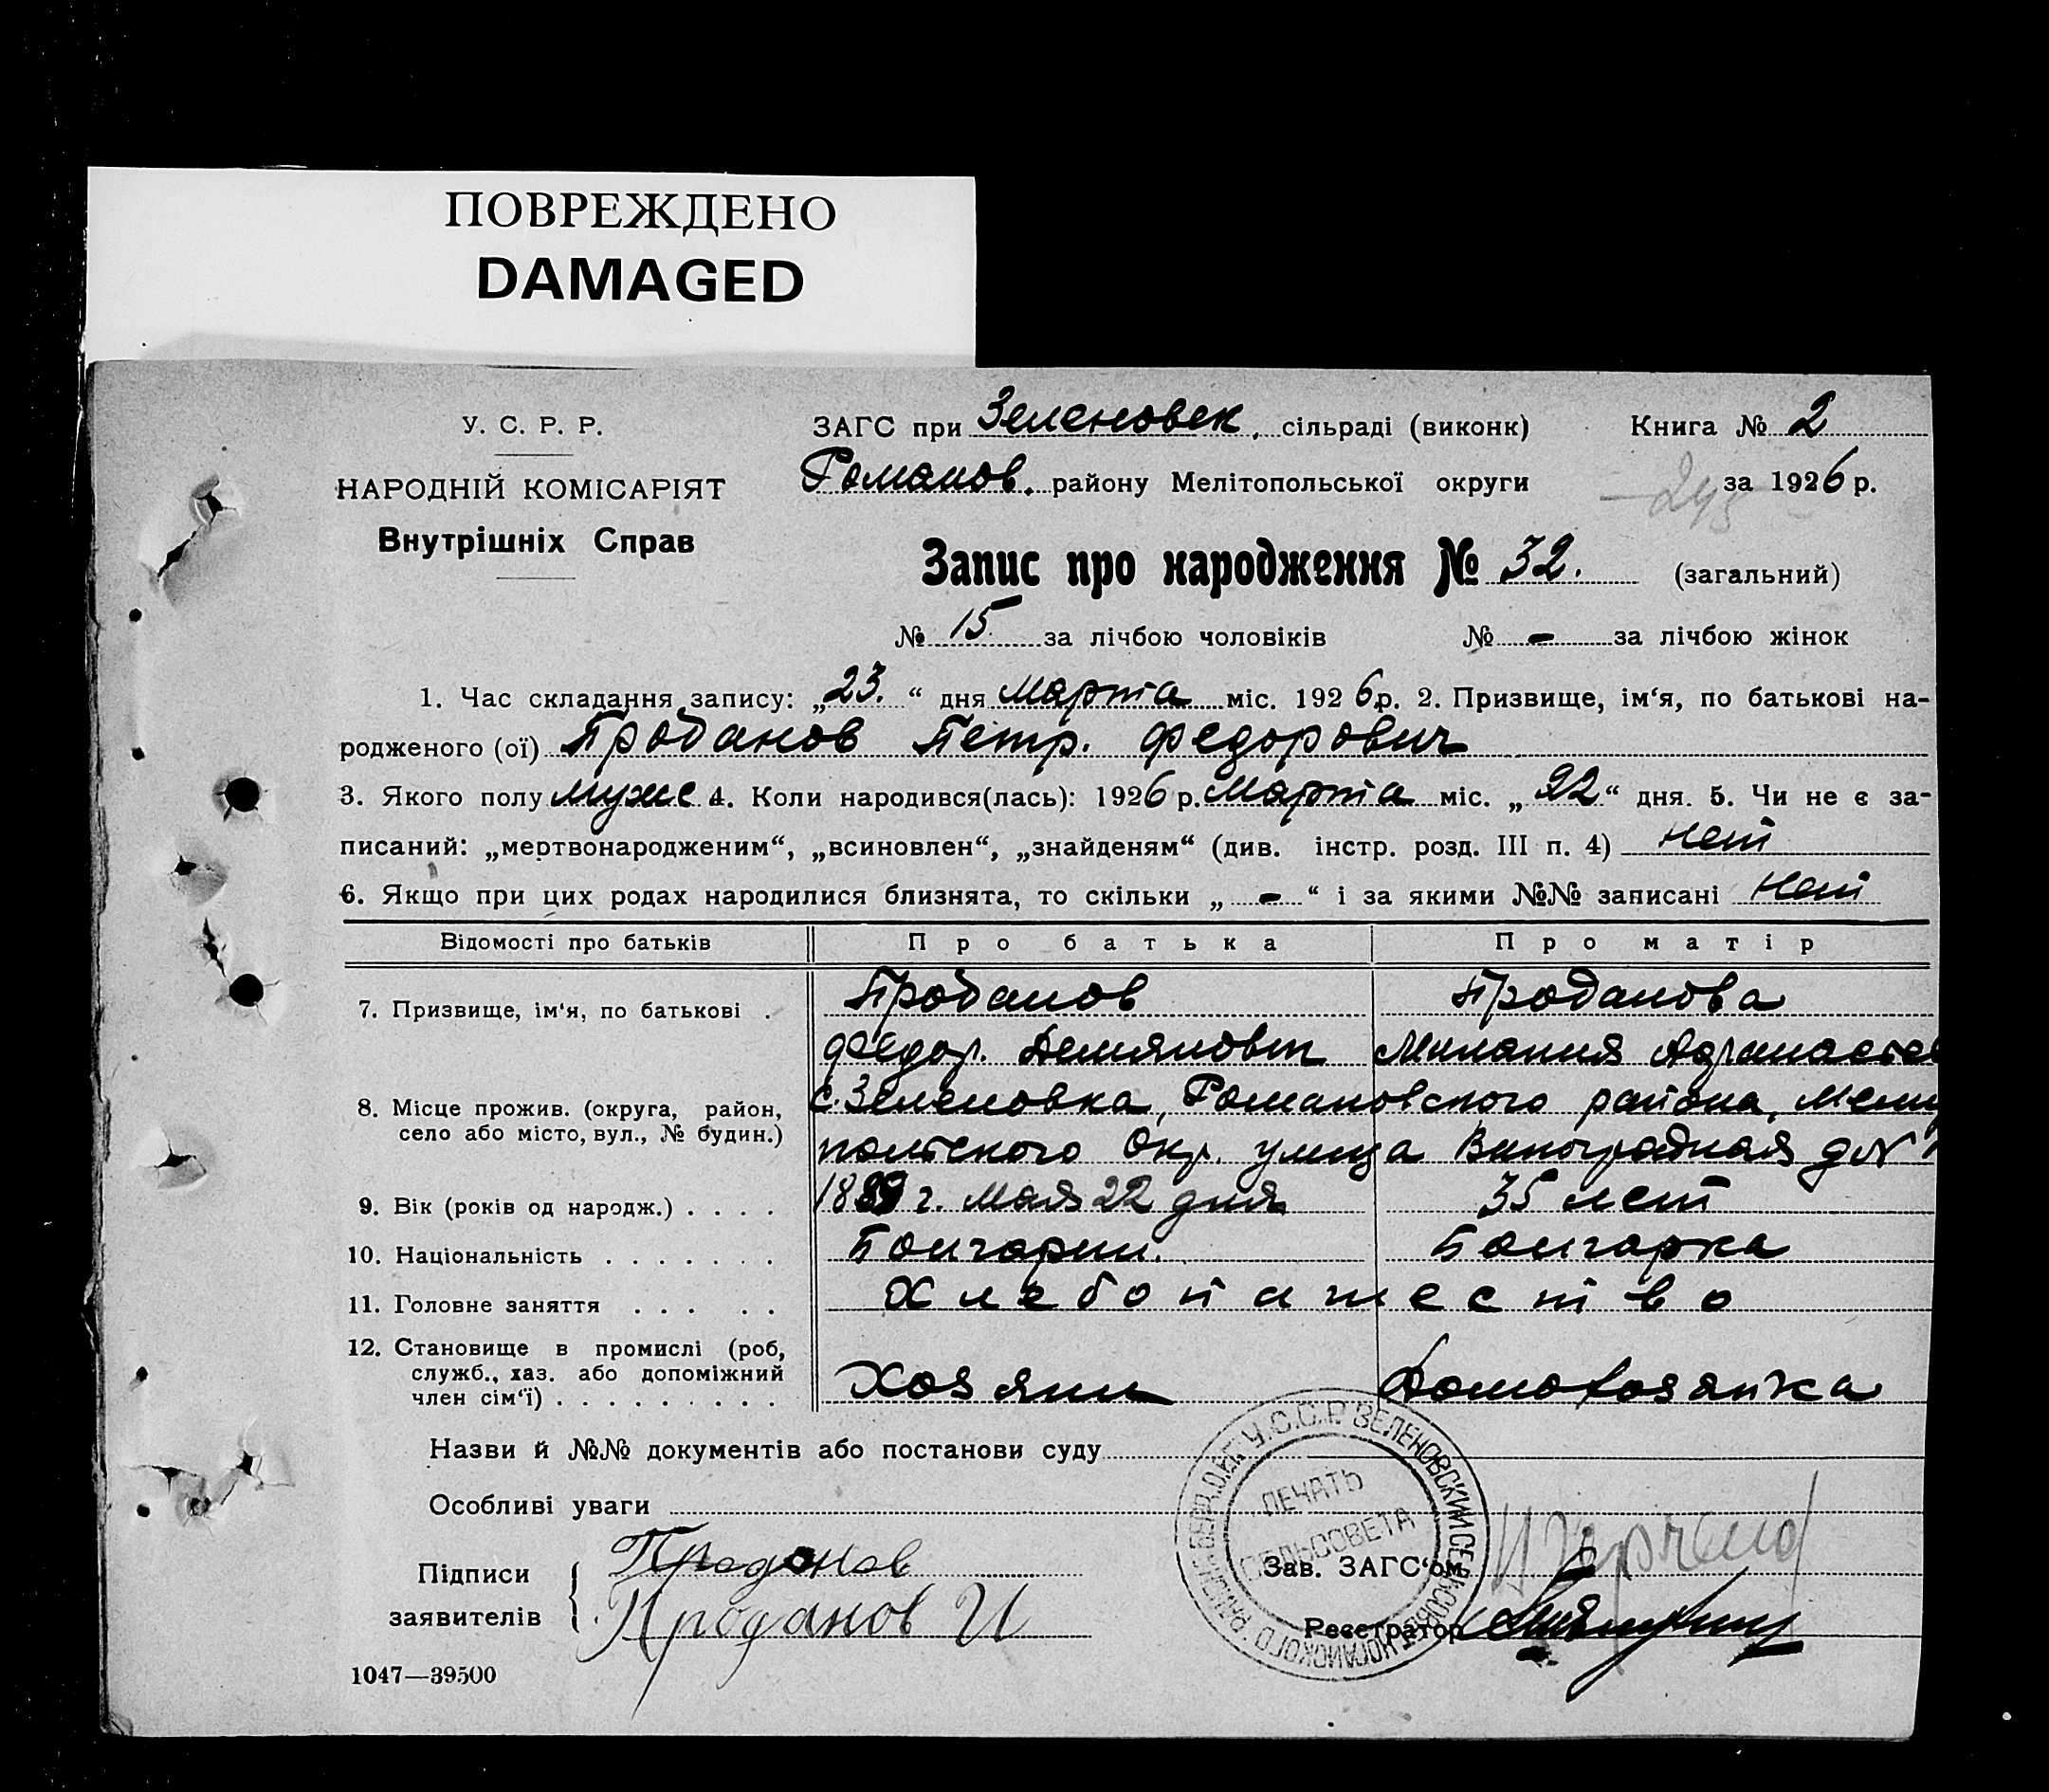 ПОВРЕЖДЕНО
DAMAGED
У. С. Р. Р.
НАРОДНІЙ КОМІСАРІЯТ
Внутрішніх Справ
ЗАГС при Зеленовск. сільраді (виконк)
Романов. району Мелітопольської округи
Книга № 2
за 1926 р.
Запис про народження № 32. (загальний)
№ 15 за лічбою чоловіків № - за лічбою жінок
1. Час складання запису: „23.“ дня Марта міс. 1926 р. 2. Призвище, ім‘я, по батькові на-
родженого (ої) Проданов Петр. Федорович
3. Якого полу муже 4. Коли народився(лась): 1926 р. Марта міс. „22“ дня. 5. Чи не є за-
писаний: „мертвонародженим“, „всиновлен“, „знайденям“ (див. інстр. розд. III п. 4) нет
6. Якщо при цих родах народилися близнята, то скільки „-“ і за якими №№ записані нет
Відомості про батьків Про батька Про матір
7. Призвище, ім‘я, по батькові . Проданов Проданова
Федор. Демянович Милания
8. Місце прожив. (округа, район, с. Зеленовка, Романовского района, Мели
село або місто, вул., № будин.) польского Окр. улица Виноградная д №
9. Вік (років од народж.) . . . . г. мая 22 дня 35 лет
10. Національність . . . . . . . Болгарин. Болгарка
11. Головне заняття . . . . . Хлебопашество
12. Становище в промислі (роб,
служб., хаз. або допоміжний
член сім‘ї) . . . . . . . . . Хозяин Домохозяйка
Назви й №№ документів або постанови суду
Особливі уваги
У.С.С.Р. ЗЕЛЕНОВСКИЙ СЕЛЬСОВЕТ НОГАЙСКОГО РАЙОНА БЕРД. ОКР.
ПЕЧАТЬ
СЕЛЬСОВЕТА
Підписи
заявителів
Проданов
Проданов И
Зав. ЗАГС‘ом
Реєстратор
1047—39500